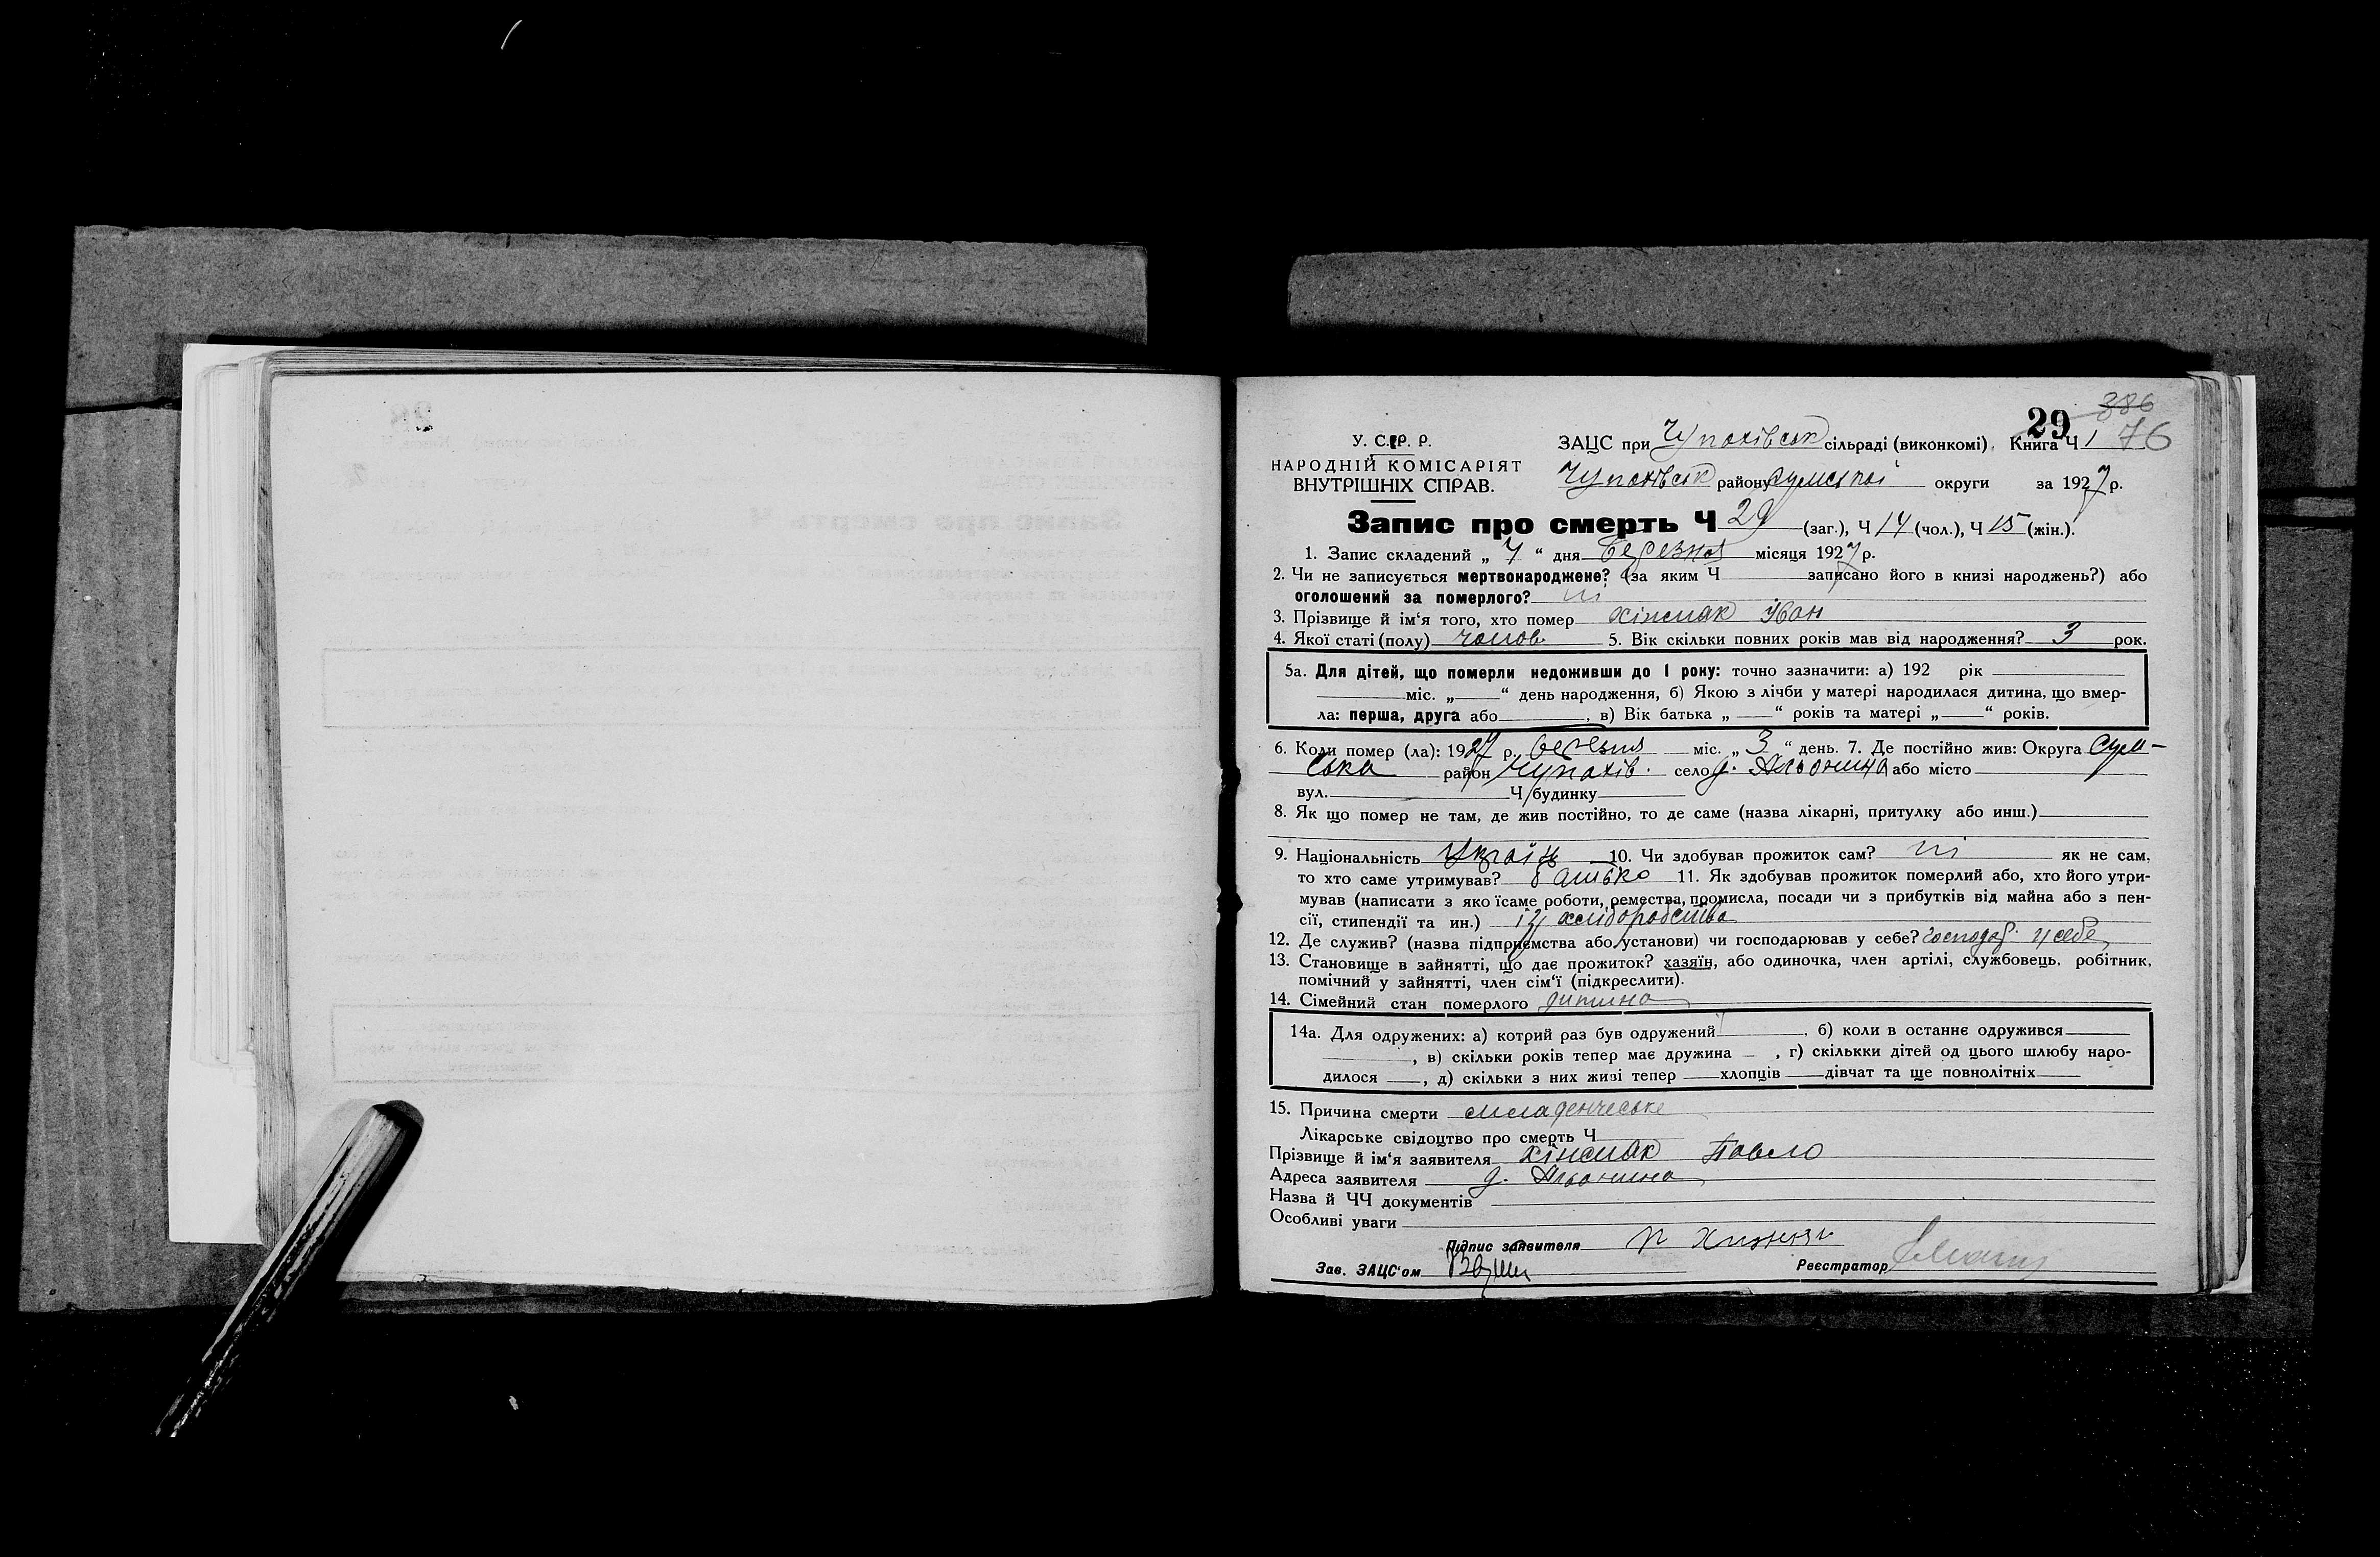 386
29
76
У. С.Р. Р.
НАРОДНІЙ КОМІСАРІЯТ
ВНУТРІШНІХ СПРАВ.
ЗАЦС при Чупахівськ сільраді (виконкомі), Книга Ч 1
Чупахівськ району Сумської округи за 1927 р.
Запис про смерть Ч 29 (заг.), Ч 14 (чол.), Ч 15 (жін.).
1. Запис складений „ 7 “ дня березня місяця 1927 р.
2. Чи не записується мертвонароджене? (за яким Ч записано його в книзі народжень?) або
оголошений за померлого? ні
3. Прізвище й ім‘я того, хто помер Хіжняк Іван
4. Якої статі (полу) чолов. 5. Вік скільки повних років мав від народження? 3 рок.
5а. Для дітей, що померли недоживши до 1 року: точно зазначити: а) 192 рік
міс. „ “ день народження, б) Якою з лічби у матері народилася дитина, що вмер-
ла: перша, друга або , в) Вік батька „ “ років та матері „ “ років.
6. Коли помер (ла): 1927 р. березня міс. „ 3 “ день. 7. Де постійно жив: Округа Сум-
ська район Чупахів. село д. Альонина або місто
вул. Ч будинку
8. Як що помер не там, де жив постійно, то де саме (назва лікарні, притулку або инш.)
9. Національність Україн 10. Чи здобував прожиток сам? ні як не сам,
то хто саме утримував? батько 11. Як здобував прожиток померлий або, хто його утри-
мував (написати з яко їсаме роботи, ремества, промисла, посади чи з прибутків від майна або з пен-
сії, стипендії та ин.) із хліборобства
12. Де служив? (назва підприємства або установи) чи господарював у себе? господар. у себе
13. Становище в зайнятті, що дає прожиток? хазяїн, або одиночка, член артілі, службовець, робітник,
помічний у зайнятті, член сім‘ї (підкреслити).
14. Сімейний стан померлого дитина
14а. Для одружених: а) котрий раз був одружений , б) коли в останнє одружився
, в) скільки років тепер має дружина , г) скількки дітей од цього шлюбу наро-
дилося , д) скільки з них живі тепер хлопців дівчат та ще повнолітніх
15. Причина смерти младенческе
Лікарське свідоцтво про смерть Ч
Прізвище й ім‘я заявителя Хіжняк Павло
Адреса заявителя д. Альонина
Назва й ЧЧ документів
Особливі уваги
Підпис заявителя П Хижняк
Зав. ЗАЦС‘ом Реєстратор